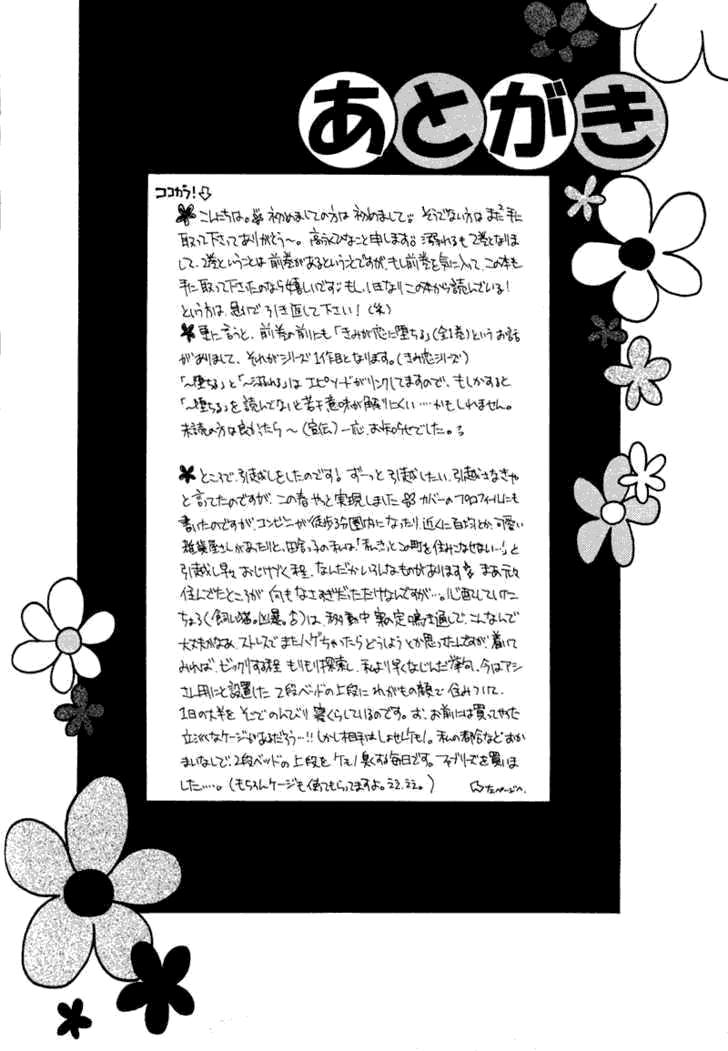 あとがき
ココから!
こんにちは。初めましての方は初めまして。そうでない方はまたまた手に
取って下さってありがとう〜。高宮ひなこと申します。溺れるも2巻となりま
して、2巻ということは前巻があるということですが、もし前巻を気に入って、この本も
手に取って下さったのなら嬉しいです。もし、いきなりこの本から読んでいる!
という方は、急いで引き返して下さい!(笑)
更に言うと、前巻の前にも「きみが恋に堕ちる」(全1巻)というお話
がありまして、それがシリーズ1作目となります。(きみ恋シリーズ)
「〜堕ちる」と「〜溺れる」はエピソードがリンクしてますので、もしかすると
「〜堕ちる」を読んでないと若干意味が解りにくい……かもしれません。
未読の方は良かったら〜(宣伝)一応、お知らせでした。
ところで、引越しをしたのです!ずーっと引越したい、引越さなきゃ
と言ってたのですが、この春やっと実現しました カバーのプロフィールにも
書いたのですが、コンビニが徒歩3分圏内になったり、近くに百均とか、可愛い
雑貨屋さんがあったりと、田舎っ子の私は、「私、きっとこの町を住みこなせない…」と
引越し早々おじけづく程、なんだかいろんなものがあります まあ元々
住んでたところが何もなさすぎだっただけなんですが…。心配していた
ちょろ(飼い猫。凶暴。)は、移動中案の定鳴き通しで、こんなんで
大丈夫かなあ、ストレスでまたハゲちゃったらどうしようとか思ったんですが、着いて
みれば、ビックリする程もりもり探索し、私より早くなじんだ挙句、今はアシ
さん用にと設置した2段ベッドの上段にわがもの顔で住みついて、
1日の大半をそこでのんびり寝くらしているのです。お、お前には買ってやった
立派なケージがあるだろう…!!しかし相手はしょせんケモノ。私の都合などおか
まいなしで、2段ベッドの上段をケモノ臭くする毎日です。ファブリーズを買いま
した…。(もちろんケージも使ってもらってますよ。)
左ページへ。